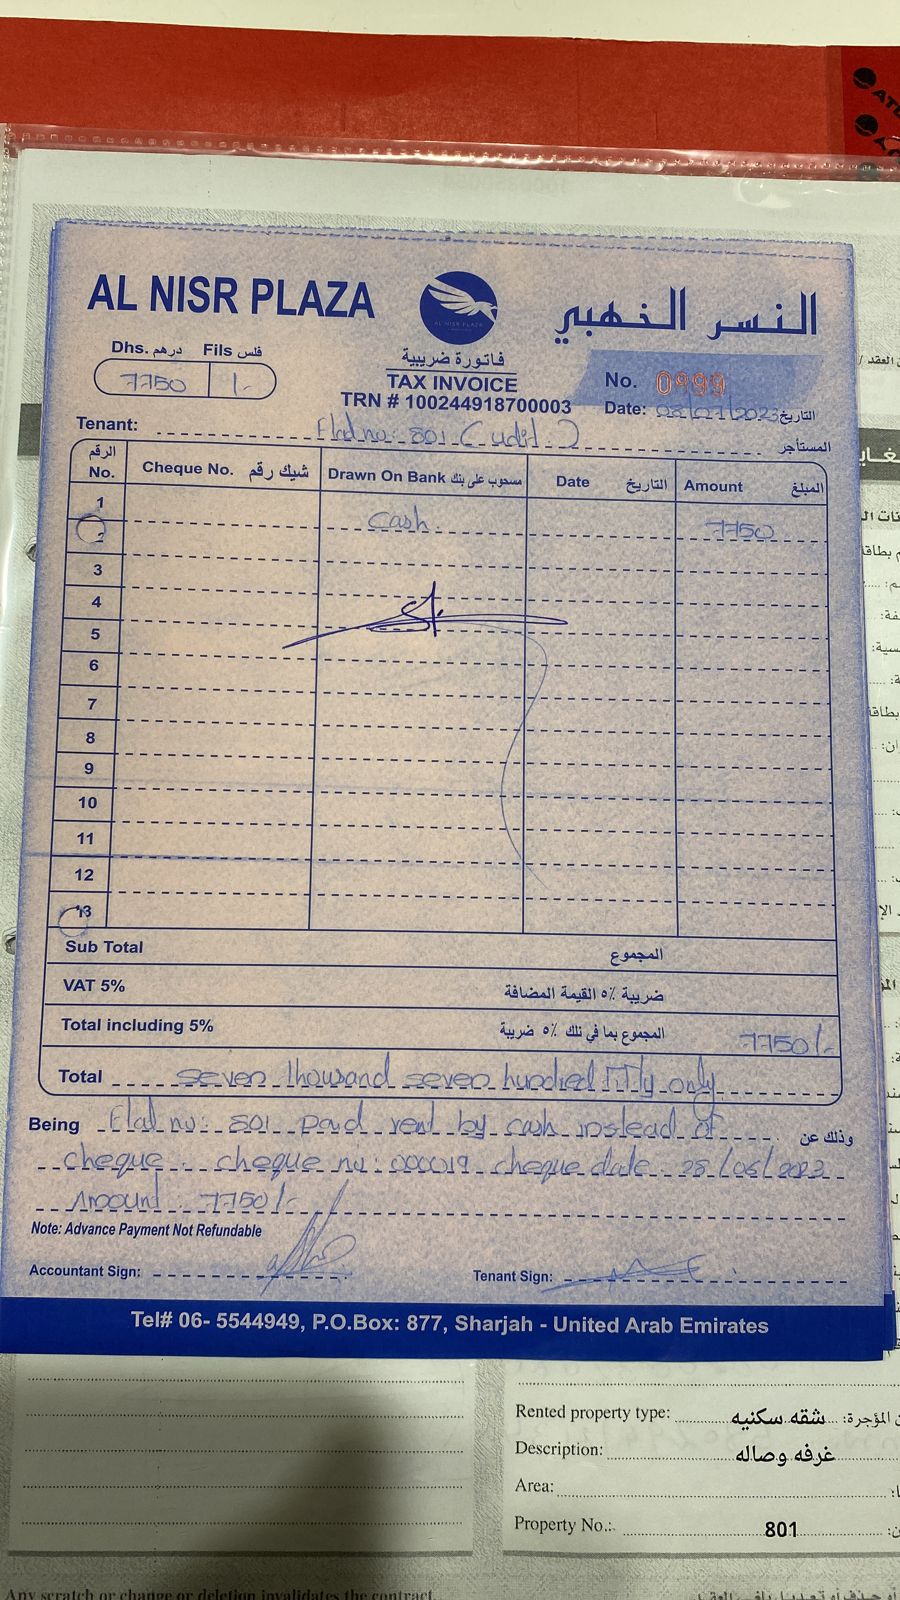 AL NISR PLAZA
النسر الذهبي
AL NISR PLAZA
Dhs. درهم Fils فلس
7750 /-
فاتورة ضريبية
TAX INVOICE
TRN # 100244918700003
No. 0999
Date: 03/07/2023 التاريخ
Tenant: Flat no: 801 المستأجر
الرقم No. Cheque No. شيك رقم Drawn On Bank مسحوب على بنك Date التاريخ Amount المبلغ
1 Cash. 7750
2
3
4
5
6
7
8
9
10
11
12
13
Sub Total المجموع
VAT 5% ضريبة ٥٪ القيمة المضافة
Total including 5% المجموع بما في تلك ٥٪ ضريبة 7750/-
Total seven thousand seven hundred fifty only
Being Flat no: 801 paid rent by cash instead of وذلك عن
cheque. cheque no: 000019 cheque date 28/06/2023
Amount 7750/-
Note: Advance Payment Not Refundable
Accountant Sign:
Tenant Sign:
Tel# 06- 5544949, P.O.Box: 877, Sharjah - United Arab Emirates
Rented property type: شقه سكنيه
Description: غرفه وصاله
Area:
Property No.: 801
Any scratch or change or deletion invalidates the contract